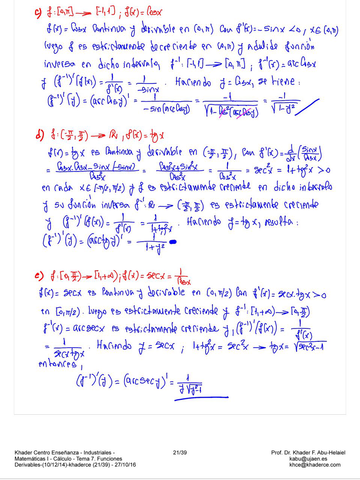 c) f: [0,π] → [-1,1] ; f(x) = Cosx
f(x) = Cosx Continua y derivable en (0,π) Con f'(x) = -sinx < 0, x∈(0,π)
luego f es estrictamente decreciente en (0,π) y admite función
inversa en dicho intervalo, f⁻¹: [-1,1] → [0,π], f⁻¹(x) = arcCosx
y (f⁻¹)'(f(x)) = 1/f'(x) = 1/-sinx . Haciendo y = Cosx, se tiene:
(f⁻¹)'(y) = (arcCosy)' = 1/-sin(arcCosy) = -1/√(1-Cos²(arcCosy)) = -1/√(1-y²)
d) f: (-π/2, π/2) → ℝ, f(x) = tgx
f(x) = tgx es Continua y derivable en (-π/2, π/2), Con f'(x) = d/dx (sinx/Cosx)
= Cosx Cosx - sinx(-sinx)/Cos²x = Cos²x+sin²x/Cos²x = 1/Cos²x = sec²x = 1+tg²x > 0
en cada x∈(-π/2, π/2) y f es estrictamente creciente en dicho intervalo
y su función inversa f⁻¹: ℝ → (-π/2, π/2) es estrictamente creciente
y (f⁻¹)'(f(x)) = 1/f'(x) = 1/1+tg²x . Haciendo y = tgx, resulta:
(f⁻¹)'(y) = (arctgy)' = 1/1+y²
e) f: [0, π/2) → [1,+∞) ; f(x) = secx = 1/Cosx
f(x) = secx es Continua y derivable en (0, π/2) Con f'(x) = secx.tgx > 0
en (0, π/2). luego es estrictamente creciente y f⁻¹: [1,+∞) → [0, π/2)
f⁻¹(x) = arcsecx es estrictamente creciente y, (f⁻¹)'(f(x)) = 1/f'(x)
= 1/secx tgx . Haciendo y = secx ; 1+tg²x = sec²x → tgx = √(sec²x-1)
entonces,
(f⁻¹)'(y) = (arcsecy)' = 1/y√(y²-1)
Khader Centro Enseñanza - Industriales - 21/39 Prof. Dr. Khader F. Abu-Helaiel
Matemáticas I - Cálculo - Tema 7. Funciones kabu@ujaen.es
Derivables-(10/12/14)-khaderce (21/39) - 27/10/16 khce@khaderce.com